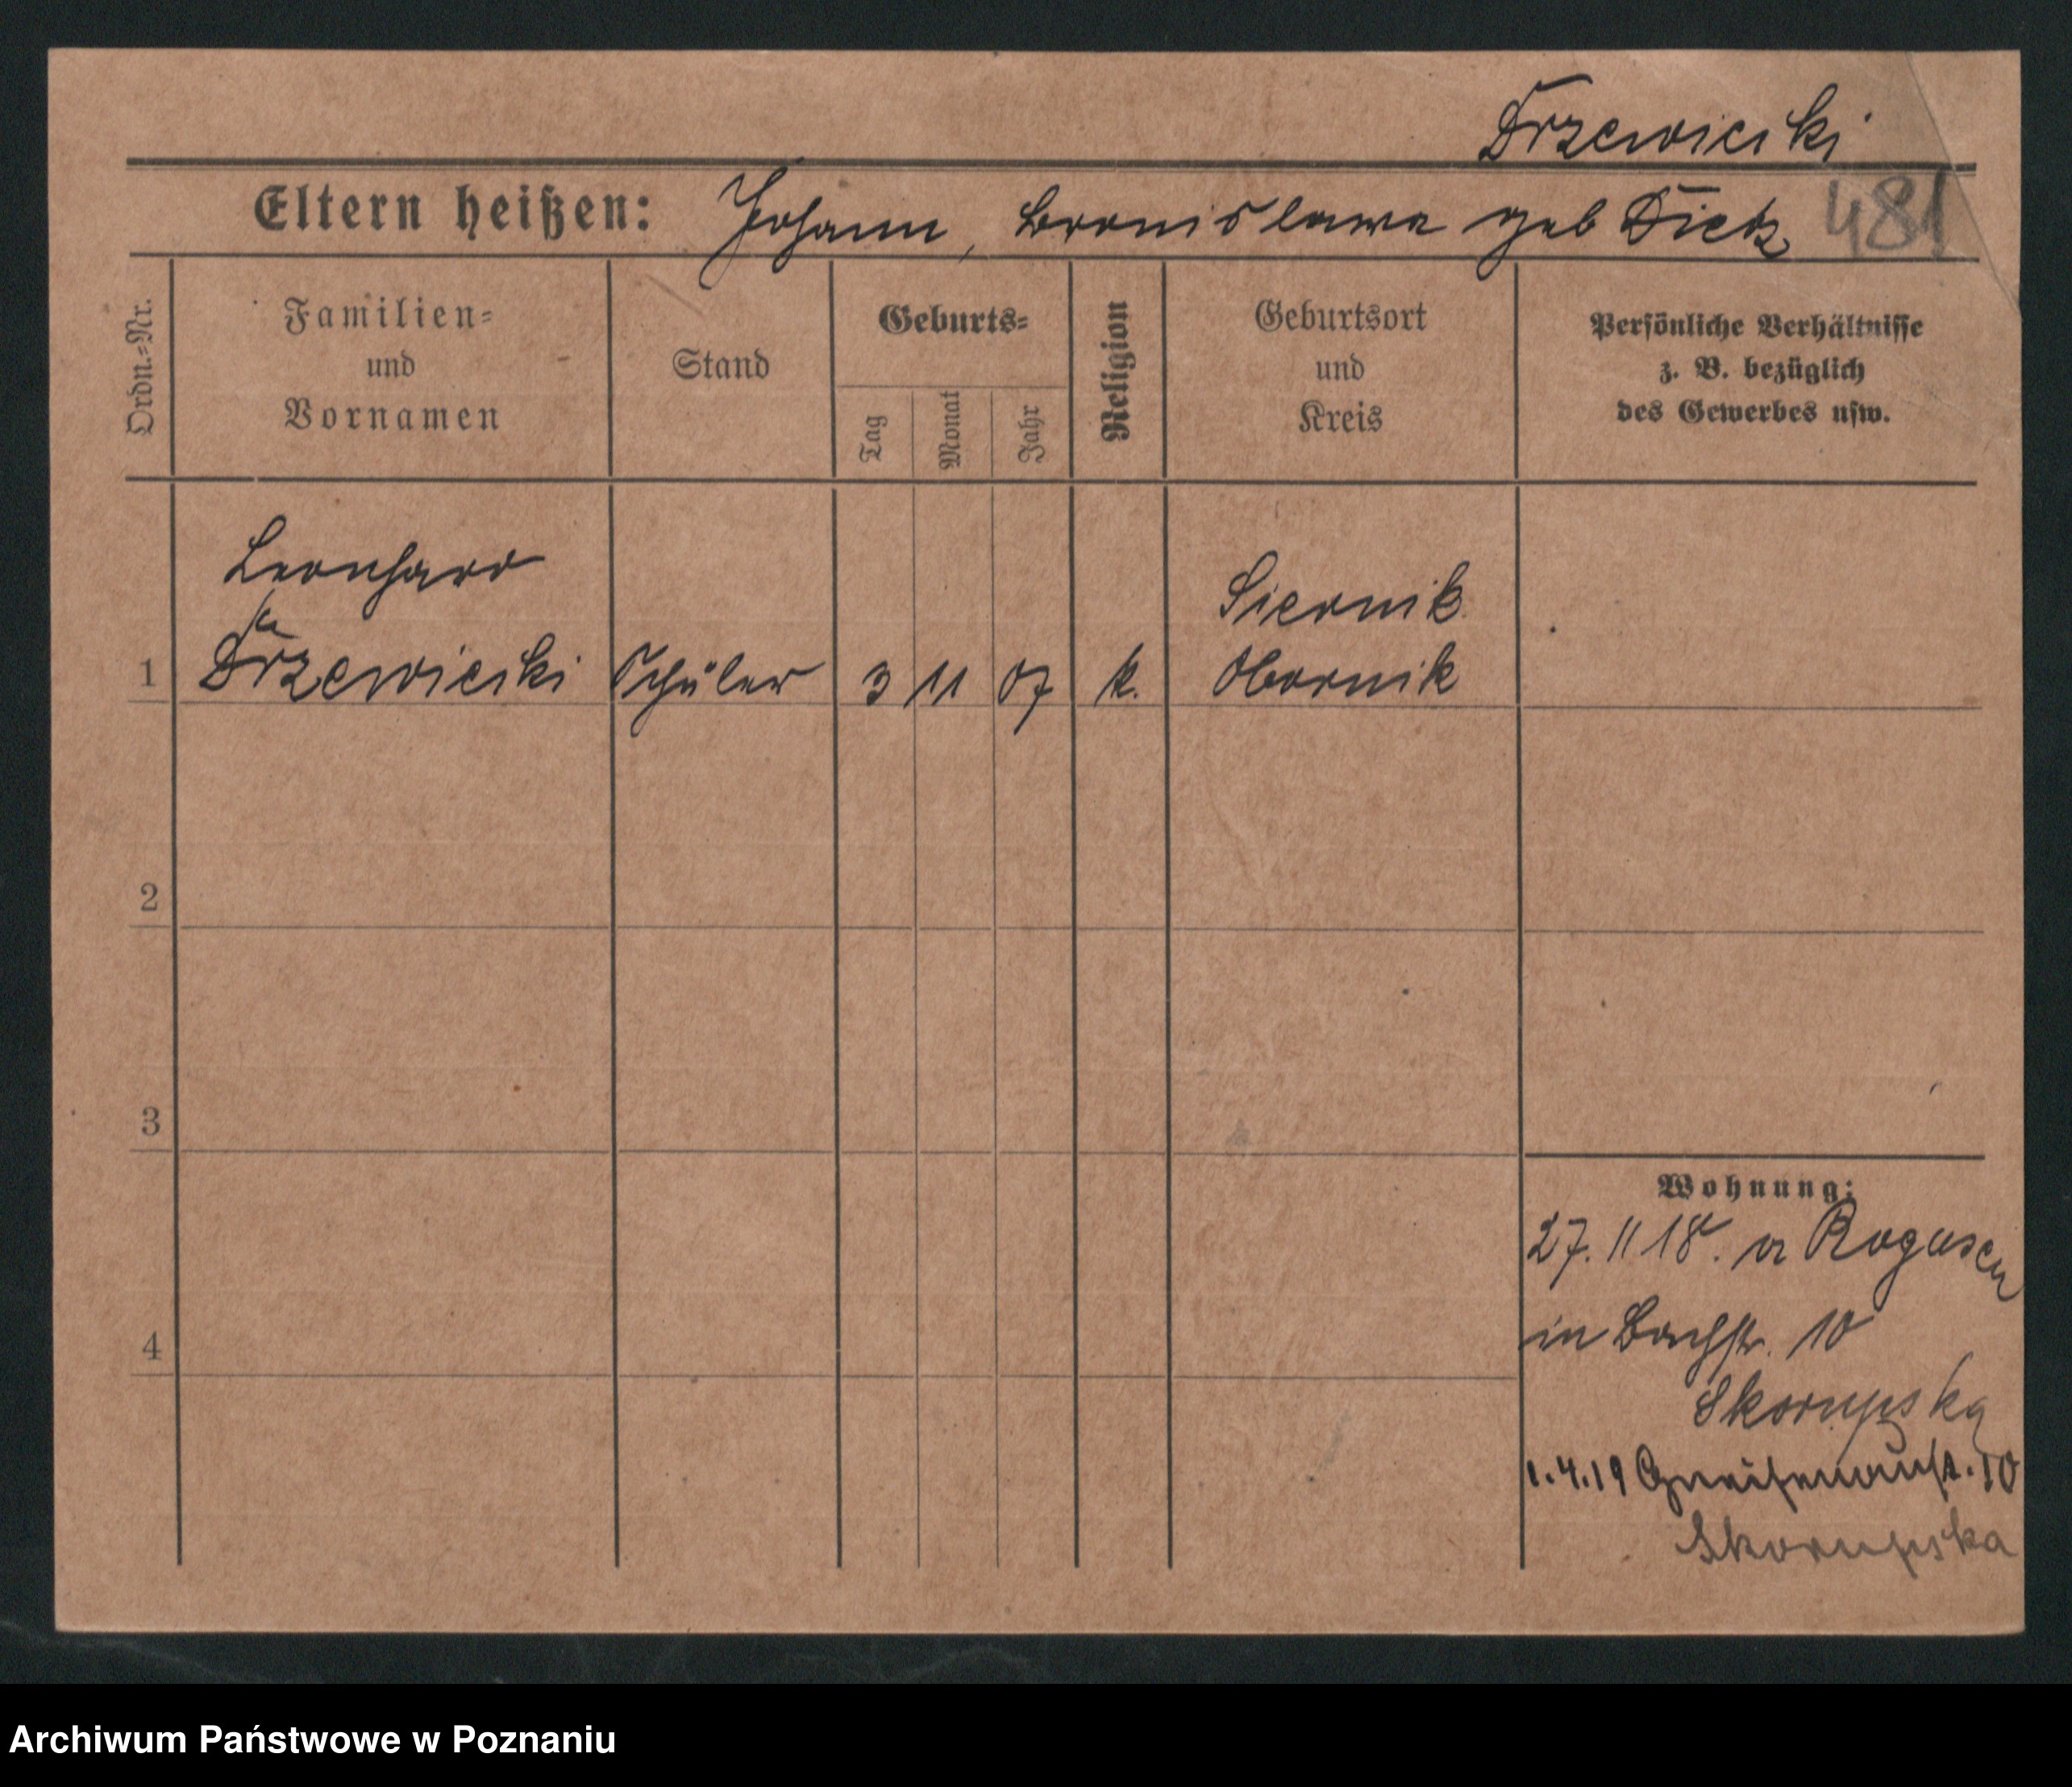 Drzewiecki
Eltern heißen: Johann, Bronislawa geb Dietz 481
Ordn.=Nr.
Familien=
und
Vornamen
Stand
Geburts=
Tag
Monat
Jahr
Religion
Geburtsort
und
Kreis
Persönliche Verhältnisse
z. B. bezüglich
des Gewerbes usw.
Leonhard
1 Drzewiecki Schüler 3 11 07 k. Siernik
Obornik
2
3
4
Wohnung:
27. 11 18. v Rogasen
in Bachstr. 10
Skorupska
1.4.19 Gneisenaust. 10
Skorupska
Archiwum Państwowe w Poznaniu